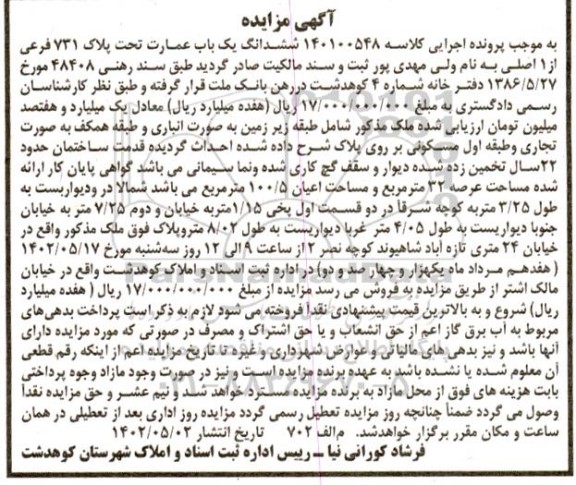 آگهی مزایده
به موجب پرونده اجرایی کلاسه ۱۴۰۱۰۰۵۴۸ ششدانگ یک باب عمارت تحت پلاک ۷۳۱ فرعی
از۱ اصلی به نام ولی مهدی پور ثبت و سند مالکیت صادر گردید طبق سند رهنی ۴۸۴۰۸ مورخ
۱۳۸۶/۵/۲۷ دفتر خانه شماره ۴ کوهدشت دررهن بانک ملت قرار گرفته و طبق نظر کارشناسان
رسمی دادگستری به مبلغ ۱۷/۰۰۰/۰۰۰/۰۰۰ ریال (هفده میلیارد ریال) معادل یک میلیارد و هفتصد
میلیون تومان ارزیابی شده ملک مذکور شامل طبقه زیر زمین به صورت انباری و طبقه همکف به صورت
تجاری وطبقه اول مسکونی بر روی پلاک شرح داده شده احداث گردیده قدمت ساختمان حدود
۲۲سال تخمین زده شده دیوار و سقف گچ کاری شده ونما سیمانی می باشد گواهی پایان کار ارائه
شده مساحت عرصه ۳۲ مترمربع و مساحت اعیان ۱۰۰/۵ مترمربع می باشد شمالا در ودیواریست به
طول ۳/۲۵ متربه کوچه شرقا در دو قسمت اول پخی ۱/۱۵متربه خیابان و دوم ۷/۲۵ متر به خیابان
جنوبا دیواریست به طول ۴/۰۵ متر غربا دیواریست به طول ۸/۰۲ متروپلاک فوق ملک مذکور واقع در
خیابان ۲۴ متری تازه آباد شاهیوند کوچه نمبر ۲ از ساعت ۹ الی ۱۲ روز سه‌شنبه مورخ ۱۴۰۲/۰۵/۱۷
( هفدهم مرداد ماه یکهزار و چهار صد و دو) در اداره ثبت اسناد و املاک کوهدشت واقع در خیابان
مالک اشتر از طریق مزایده به فروش می رسد مزایده از مبلغ ۱۷/۰۰۰/۰۰۰/۰۰۰ ریال ( هفده میلیارد
ریال) شروع و به بالاترین قیمت پیشنهادی نقدا فروخته می شود لازم به ذکر است پرداخت بدهی‌های
مربوط به آب برق گاز اعم از حق انشعاب و یا حق اشتراک و مصرف در صورتی که مورد مزایده دارای
آنها باشد و نیز بدهی های مالیاتی و عوارض شهرداری و غیره تا تاریخ مزایده اعم از اینکه رقم قطعی
آن معلوم شده یا نشده باشد به عهده برنده مزایده است و نیز در صورت وجود مازاد وجوه پرداختی
بابت هزینه های فوق از محل مازاد به برنده مزایده مسترد خواهد شد و نیم عشر و حق مزایده نقدا
وصول می گردد ضمنا چنانچه روز مزایده تعطیل رسمی گردد مزایده روز اداری بعد از تعطیلی در همان
ساعت و مکان مقرر برگزار خواهدشد. م‌الف ۷۰۲ تاریخ انتشار ۱۴۰۲/۰۵/۰۲
فرشاد کورانی نیا ــ رییس اداره ثبت اسناد و املاک شهرستان کوهدشت